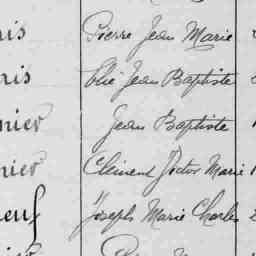 ris Pierre Jean Marie
ris Elie Jean Baptiste
nier Jean Baptiste
nier Clément Victor Marie
euf Joseph Marie Charles